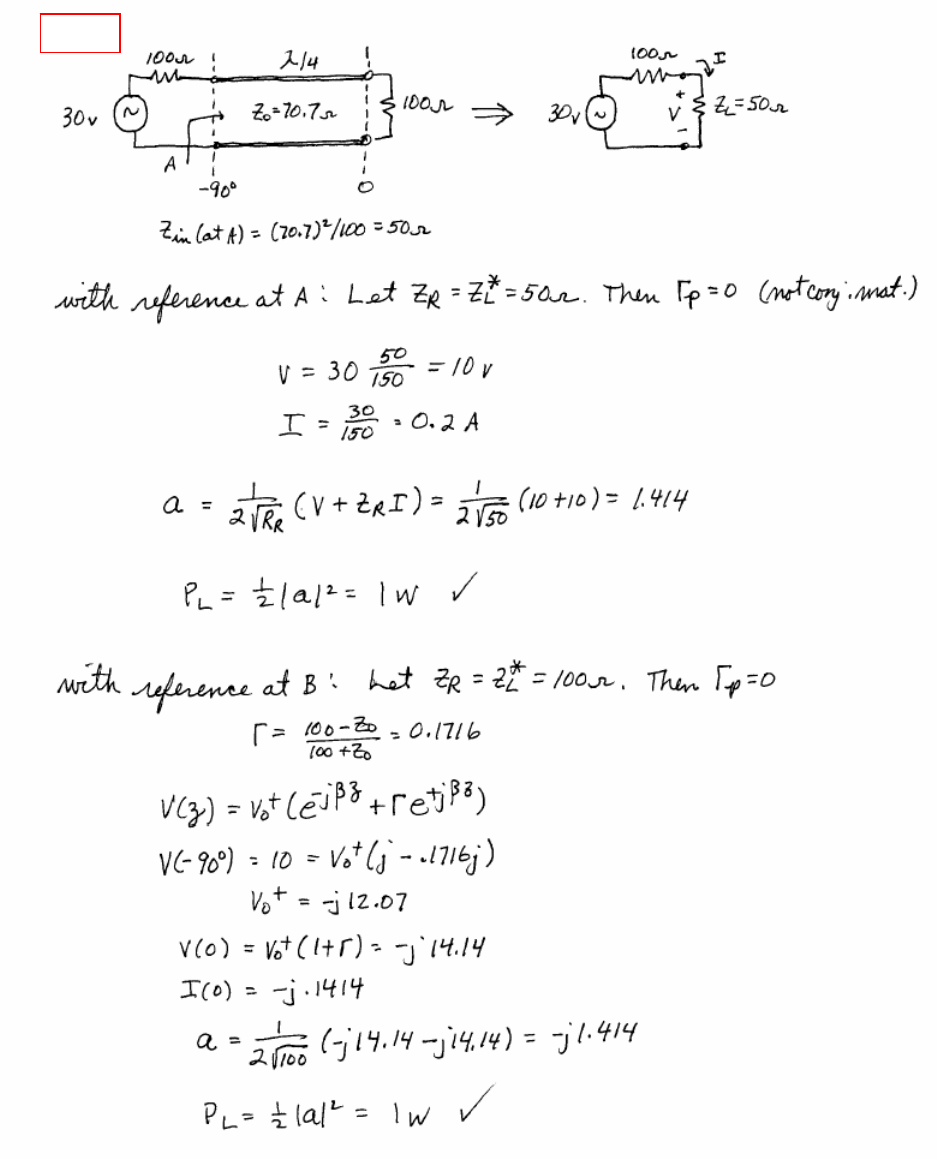 100Ω
λ/4
30v
Z₀=70.7Ω
100Ω
A
-90°
0
⇒
100Ω
I
30v
+
V
-
Z_L=50Ω
Z_in (at A) = (70.7)²/100 = 50Ω
with reference at A : Let Z_R = Z_L^* = 50Ω. Then Γ_p = 0 (not conj. mat.)
V = 30 50/150 = 10 v
I = 30/150 = 0.2 A
a = 1/(2√R_R) (V + Z_R I) = 1/(2√50) (10 + 10) = 1.414
P_L = ½|a|² = 1 W ✓
with reference at B : Let Z_R = Z_L^* = 100Ω. Then Γ_p = 0
Γ = (100 - Z₀)/(100 + Z₀) = 0.1716
V(z) = V₀⁺ (e^-jβz + Γ e^+jβz)
V(-90°) = 10 = V₀⁺ (j - .1716j)
V₀⁺ = -j 12.07
V(0) = V₀⁺ (1+Γ) = -j 14.14
I(0) = -j .1414
a = 1/(2√100) (-j14.14 - j14.14) = -j1.414
P_L = ½|a|² = 1W ✓